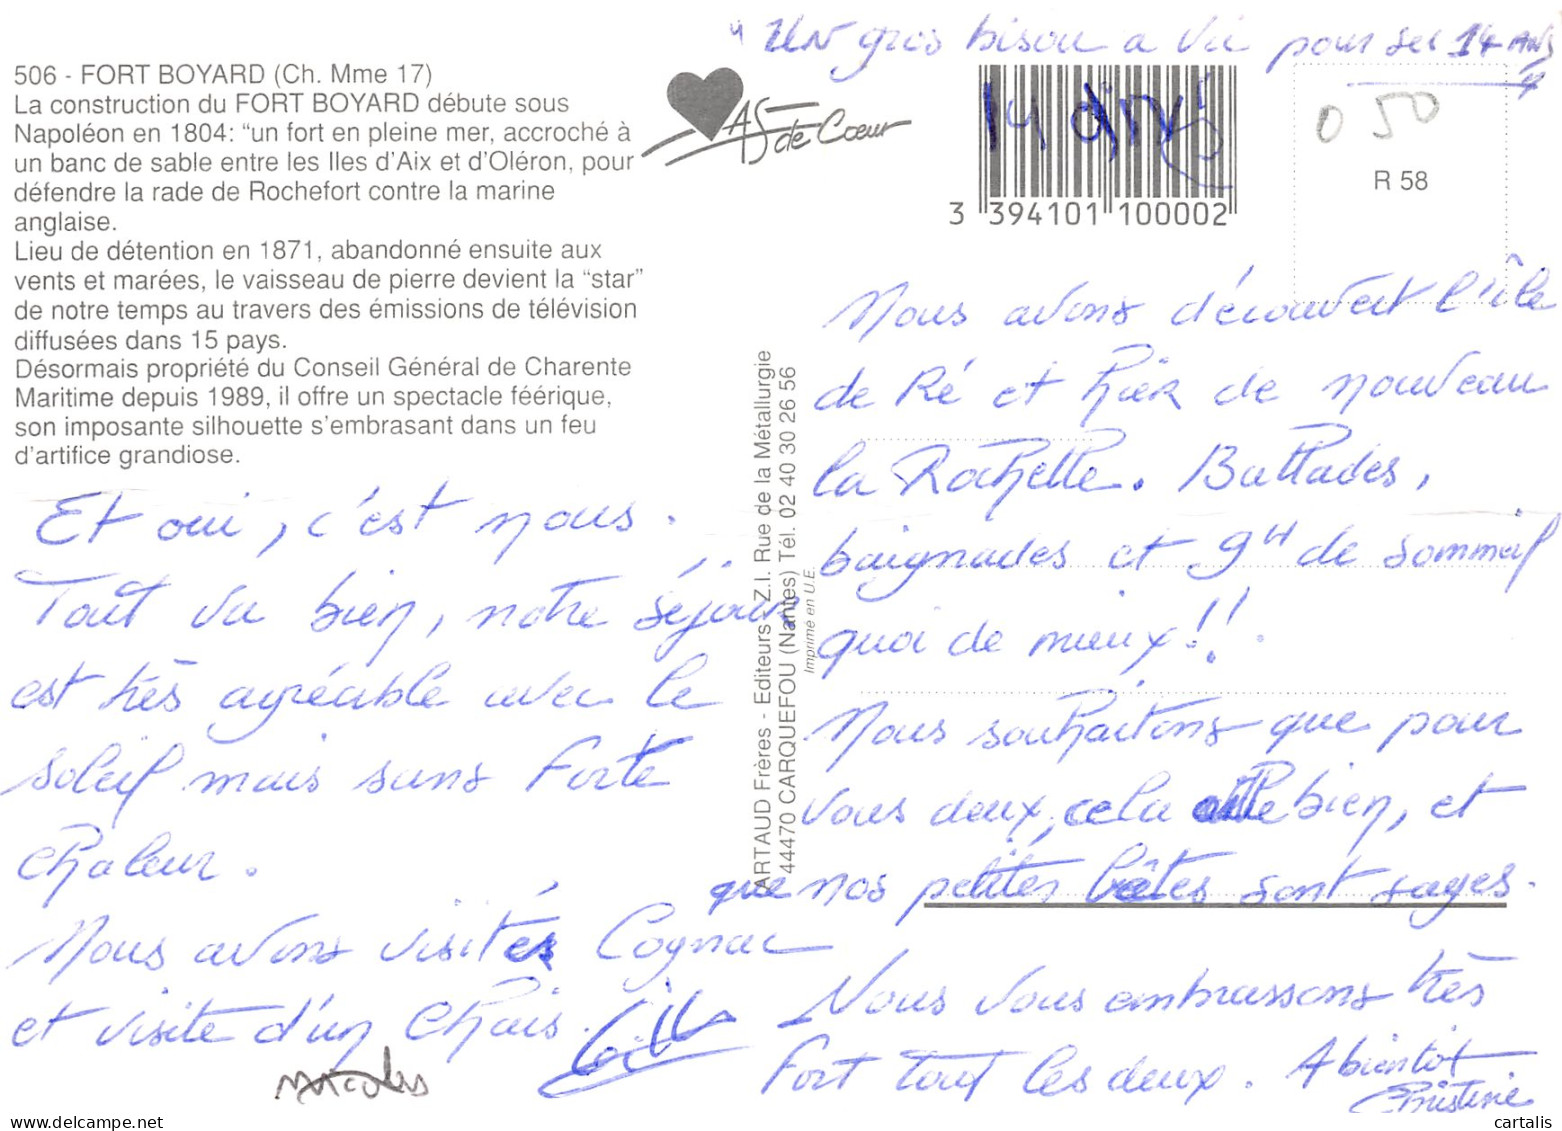 " Un gros bisou a Vic pour ses 14 ans
506 - FORT BOYARD (Ch. Mme 17)
La construction du FORT BOYARD débute sous
Napoléon en 1804: "un fort en pleine mer, accroché à
un banc de sable entre les Iles d'Aix et d'Oléron, pour
défendre la rade de Rochefort contre la marine
anglaise.
Lieu de détention en 1871, abandonné ensuite aux
vents et marées, le vaisseau de pierre devient la "star"
de notre temps au travers des émissions de télévision
diffusées dans 15 pays.
Désormais propriété du Conseil Général de Charente
Maritime depuis 1989, il offre un spectacle féérique,
son imposante silhouette s'embrasant dans un feu
d'artifice grandiose.
AS de Cœur
14 ans
3 394101 100002
0 50
R 58
Et oui, c'est nous.
Tout va bien, notre séjour
est très agréable avec le
soleil mais sans forte
chaleur.
Nous avons visités Cognac
et visite d'un Chais.
ARTAUD Frères - Editeurs - Z.I. Rue de la Métallurgie
44470 CARQUEFOU (Nantes) Tél. 02 40 30 26 56
Imprimé en U.E.
Nous avons découvert l'île
de Ré et hier de nouveau
la Rochelle. Ballades,
baignades et 9H de sommeil
quoi de mieux!!
Nous souhaitons que pour
vous deux, cela aille bien, et
que nos petites bêtes sont sages.
Nous vous embrassons très
fort tout les deux. A bientôt
Christine
www.delcampe.net
cartalis